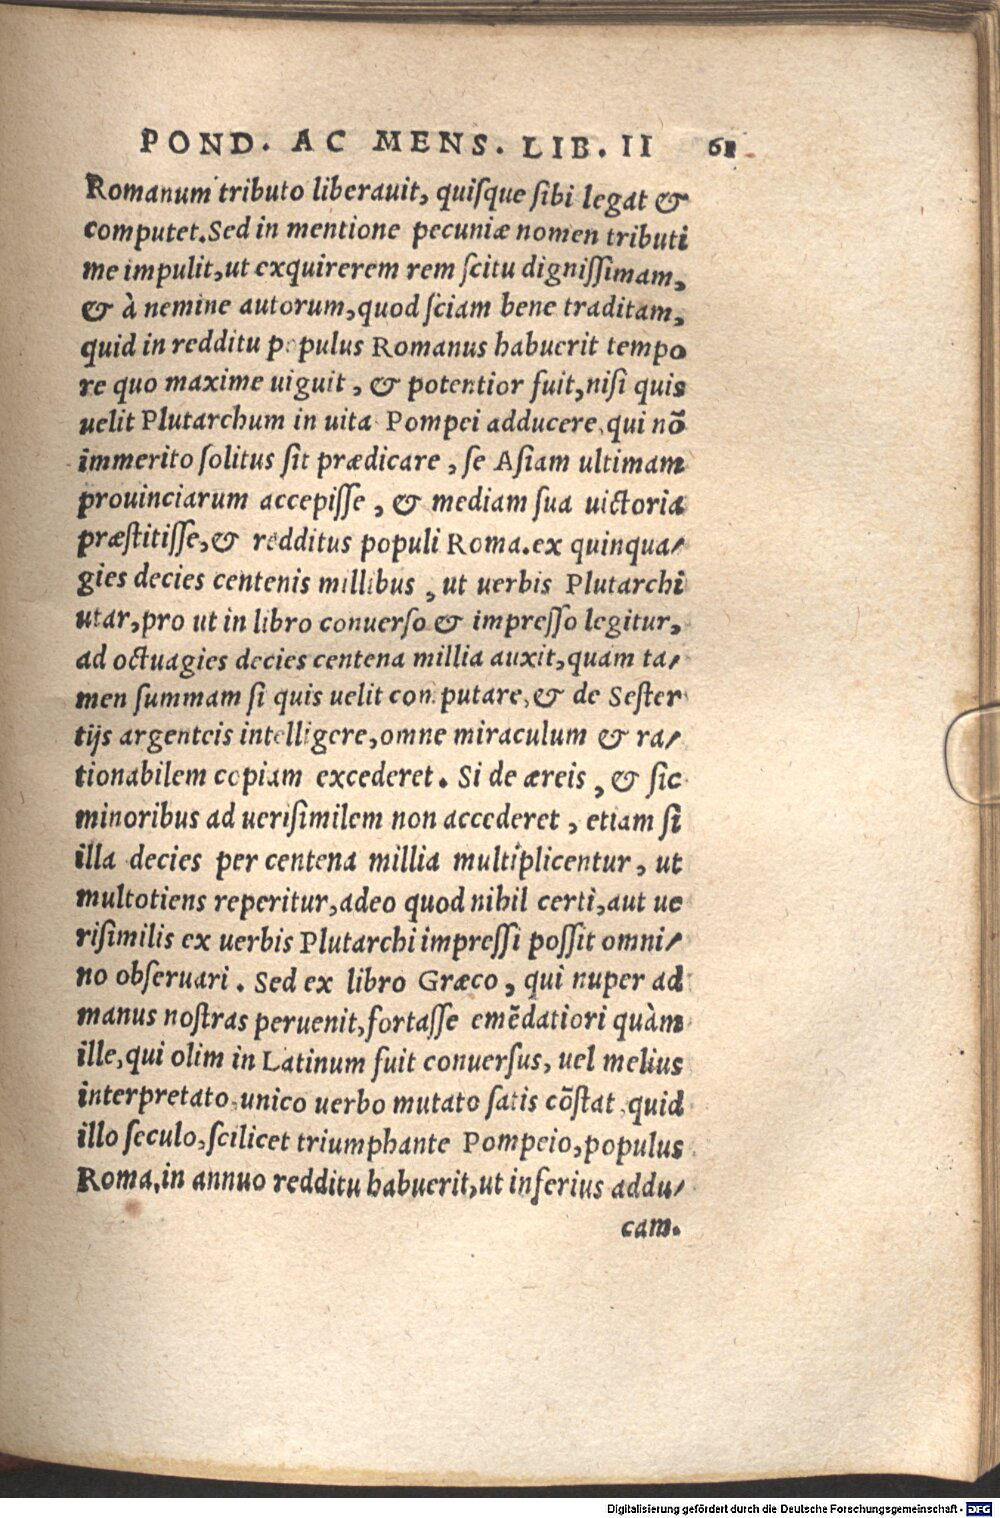 POND. AC MENS. LIB. II 61
Romanum tributo liberauit, quiſque ſibi legat &
computet. Sed in mentione pecuniæ nomen tributi
me impulit, ut exquirerem rem ſcitu digniſſimam,
& à nemine autorum, quod ſciam bene traditam,
quid in redditu populus Romanus habuerit tempo
re quo maxime uiguit, & potentior fuit, niſi quis
uelit Plutarchum in uita Pompei adducere, qui nõ
immerito ſolitus ſit prædicare, ſe Aſiam ultimam
prouinciarum accepiſſe, & mediam ſua uictoria
præſtitiſſe, & redditus populi Roma. ex quinqua/
gies decies centenis millibus, ut uerbis Plutarchi
utar, pro ut in libro conuerſo & impreſſo legitur,
ad octuagies decies centena millia auxit, quam ta/
men ſummam ſi quis uelit computare, & de Seſter
tijs argenteis intelligere, omne miraculum & ra/
tionabilem copiam excederet. Si de æreis, & ſic
minoribus ad ueriſimilem non accederet, etiam ſi
illa decies per centena millia multiplicentur, ut
multotiens reperitur, adeo quod nihil certi, aut ue
riſimilis ex uerbis Plutarchi impreſſi poſſit omni/
no obſeruari. Sed ex libro Græco, qui nuper ad
manus noſtras peruenit, fortaſſe emẽdatiori quàm
ille, qui olim in Latinum fuit conuerſus, uel melius
interpretato, unico uerbo mutato ſatis cõſtat, quid
illo ſeculo, ſcilicet triumphante Pompeio, populus
Roma. in annuo redditu habuerit, ut inferius addu/
cam.
Digitalisierung gefördert durch die Deutsche Forschungsgemeinschaft - DFG